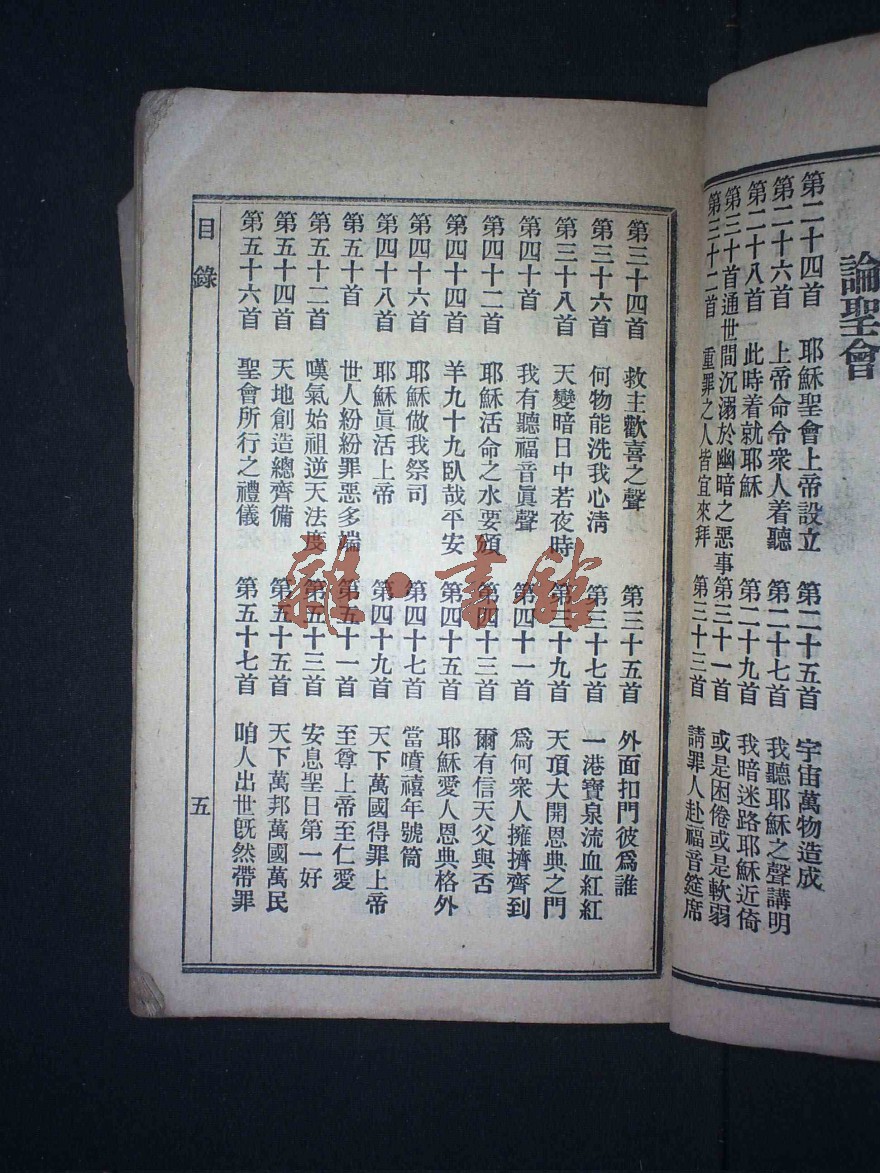 論聖會
第二十四首 耶穌聖會上帝設立 第二十五首 宇宙萬物造成
第二十六首 上帝命令衆人着聽 第二十七首 我聽耶穌之聲講明
第二十八首 此時着就耶穌 第二十九首 我暗迷路耶穌近倚
第三十首 通世間沉溺於幽暗之惡事 第三十一首 或是困倦或是軟弱
第三十二首 重罪之人皆宜來拜 第三十三首 請罪人赴福音筵席
第三十四首 救主歡喜之聲 第三十五首 外面扣門彼爲誰
第三十六首 何物能洗我心淸 第三十七首 一港寶泉流血紅紅
第三十八首 天變暗日中若夜時 第三十九首 天頂大開恩典之門
第四十首 我有聽福音眞聲 第四十一首 爲何衆人擁擠齊到
第四十二首 耶穌活命之水要頒 第四十三首 爾有信天父與否
第四十四首 羊九十九臥哉平安 第四十五首 耶穌愛人恩典格外
第四十六首 耶穌做我祭司 第四十七首 當噴禧年號筒
第四十八首 耶穌眞活上帝 第四十九首 天下萬國得罪上帝
第五十首 世人紛紛罪惡多端 第五十一首 至尊上帝至仁愛
第五十二首 嘆氣始祖逆天法度 第五十三首 安息聖日第一好
第五十四首 天地創造總齊備 第五十五首 天下萬邦萬國萬民
第五十六首 聖會所行之禮儀 第五十七首 咱人出世旣然帶罪
目錄 五
雜·書館